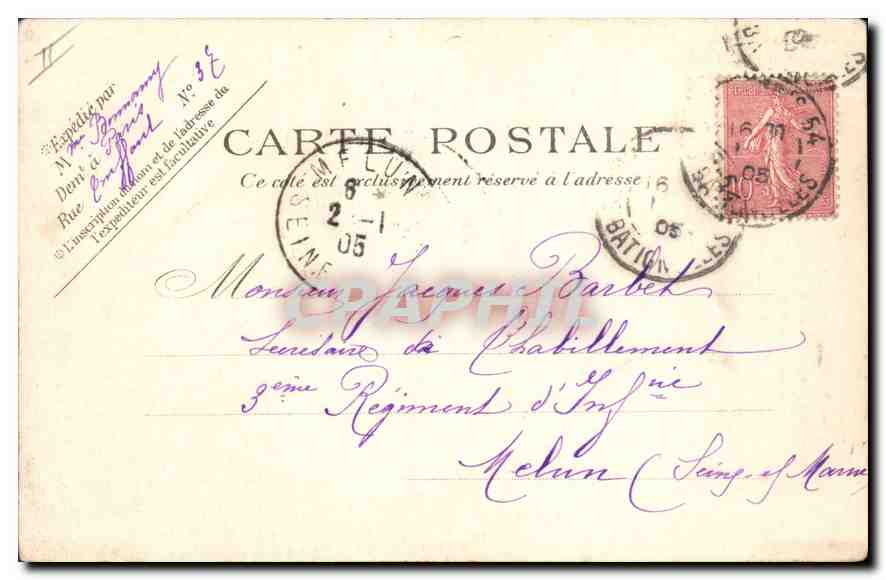 II
Expédié par
M me Bonnamy
Demt à Paris
Rue Truffaut No 37
L'inscription du nom et de l'adresse de
l'expéditeur est facultative
CARTE POSTALE
Ce coté est exclusivement réservé à l'adresse
MELUN
6
2 -1
05
SEINE
6
05
BATIGNOLLES
54
16
05
10
Monsieur Jacques Barbet
Secrétaire de l'habillement
3ème Régiment d'Infrie
Melun (Seine et Marne
CPAPHIL